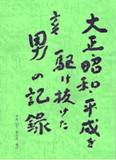 大正昭和・平成を
駆け抜けた
男の記録